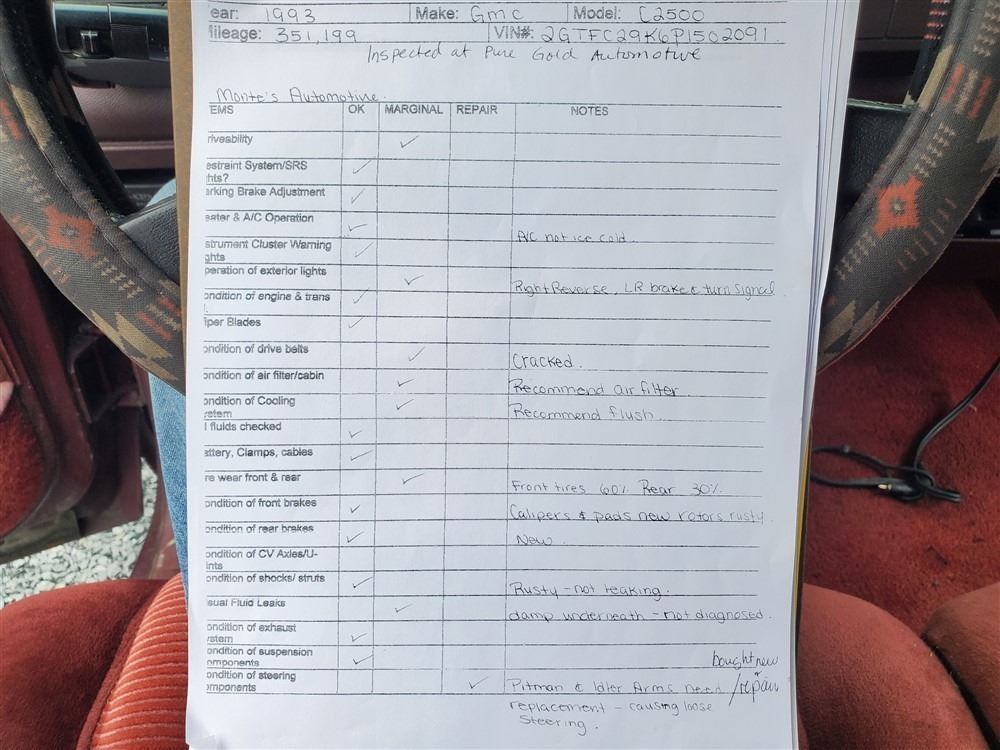 ear: 1993 Make: Gmc Model: C2500
ileage: 351,199 VIN#: 2GTFC29K6P1502091
Inspected at Pure Gold Automotive
Monte's Automotive.
EMS OK MARGINAL REPAIR NOTES
riveability ✓
estraint System/SRS
hts? ✓
arking Brake Adjustment ✓
eater & A/C Operation ✓ A/C not ice cold.
strument Cluster Warning
ghts ✓
peration of exterior lights ✓ Right Reverse, LR brake & turn signal.
ondition of engine & trans ✓
.
iper Blades ✓
ondition of drive belts ✓ Cracked.
ondition of air filter/cabin ✓ Recommend air filter
ondition of Cooling
ystem ✓ Recommend flush.
l fluids checked ✓
attery, Clamps, cables ✓
re wear front & rear ✓ Front tires 60% Rear 30%.
ondition of front brakes ✓ Calipers & pads new rotors rusty.
ondition of rear brakes ✓ New.
ondition of CV Axles/U-
ints
ondition of shocks/ struts ✓ Rusty - not leaking.
sual Fluid Leaks ✓ damp underneath - not diagnosed.
ondition of exhaust
ystem ✓
ondition of suspension
omponents ✓ bought new
ondition of steering
omponents ✓ Pitman & Idler Arms need / repair
replacement - causing loose
Steering.